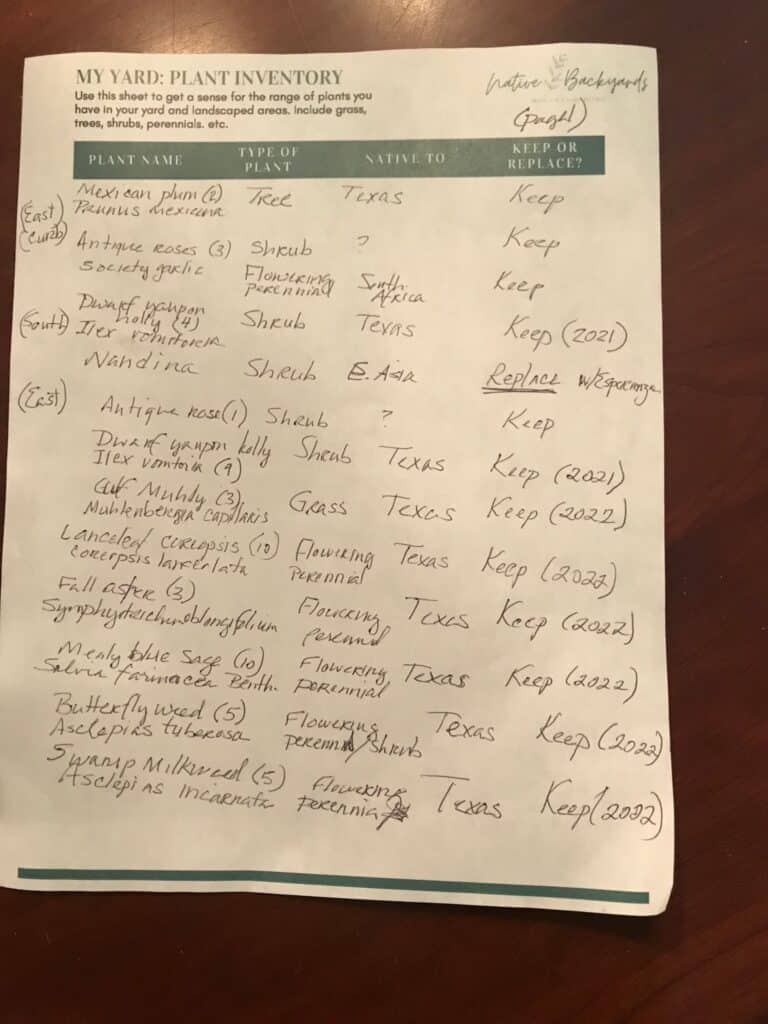 MY YARD: PLANT INVENTORY
Native Backyards
Use this sheet to get a sense for the range of plants you
have in your yard and landscaped areas. Include grass,
trees, shrubs, perennials. etc.
(page 1)
PLANT NAME TYPE OF PLANT NATIVE TO KEEP OR REPLACE?
(East) (Curb)
Mexican plum (2) Tree Texas Keep
Prunus Mexicana
Antique roses (3) Shrub ? Keep
Society garlic Flowering South Keep
perennial Africa
(South)
Dwarf yaupon
holly (4) Shrub Texas Keep (2021)
Ilex vomitoria
Nandina Shrub E. Asia Replace w/Esperanza
(East)
Antique rose (1) Shrub ? Keep
Dwarf yaupon holly Shrub Texas Keep (2021)
Ilex vomitoria (9)
Gulf Muhly (3) Grass Texas Keep (2022)
Muhlenbergia capillaris
Lanceleaf coreopsis (10) Flowering Texas Keep (2022)
coreopsis lanceolata perennial
Fall aster (3) Flowering Texas Keep (2022)
Symphyotrichum oblongifolium perennial
Mealy blue sage (10) Flowering Texas Keep (2022)
Salvia farinacea Benth. perennial
Butterfly weed (5) Flowering Texas Keep (2022)
Asclepias tuberosa perennial/shrub
Swamp Milkweed (5) Flowering Texas Keep (2022)
Asclepias incarnata perennial